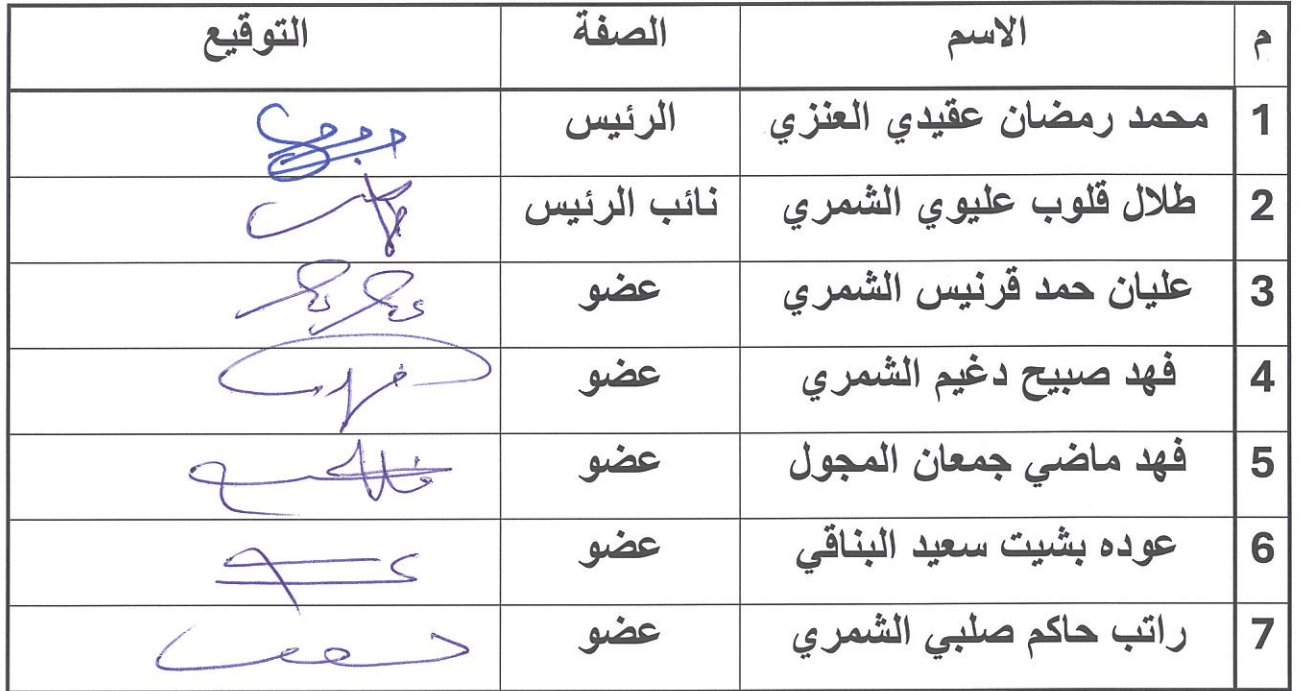 م الاسم الصفة التوقيع
1 محمد رمضان عقيدي العنزي الرئيس
2 طلال قلوب عليوي الشمري نائب الرئيس
3 عليان حمد قرنيس الشمري عضو
4 فهد صبيح دغيم الشمري عضو
5 فهد ماضي جمعان المجول عضو
6 عوده بشيت سعيد البناقي عضو
7 راتب حاكم صلبي الشمري عضو